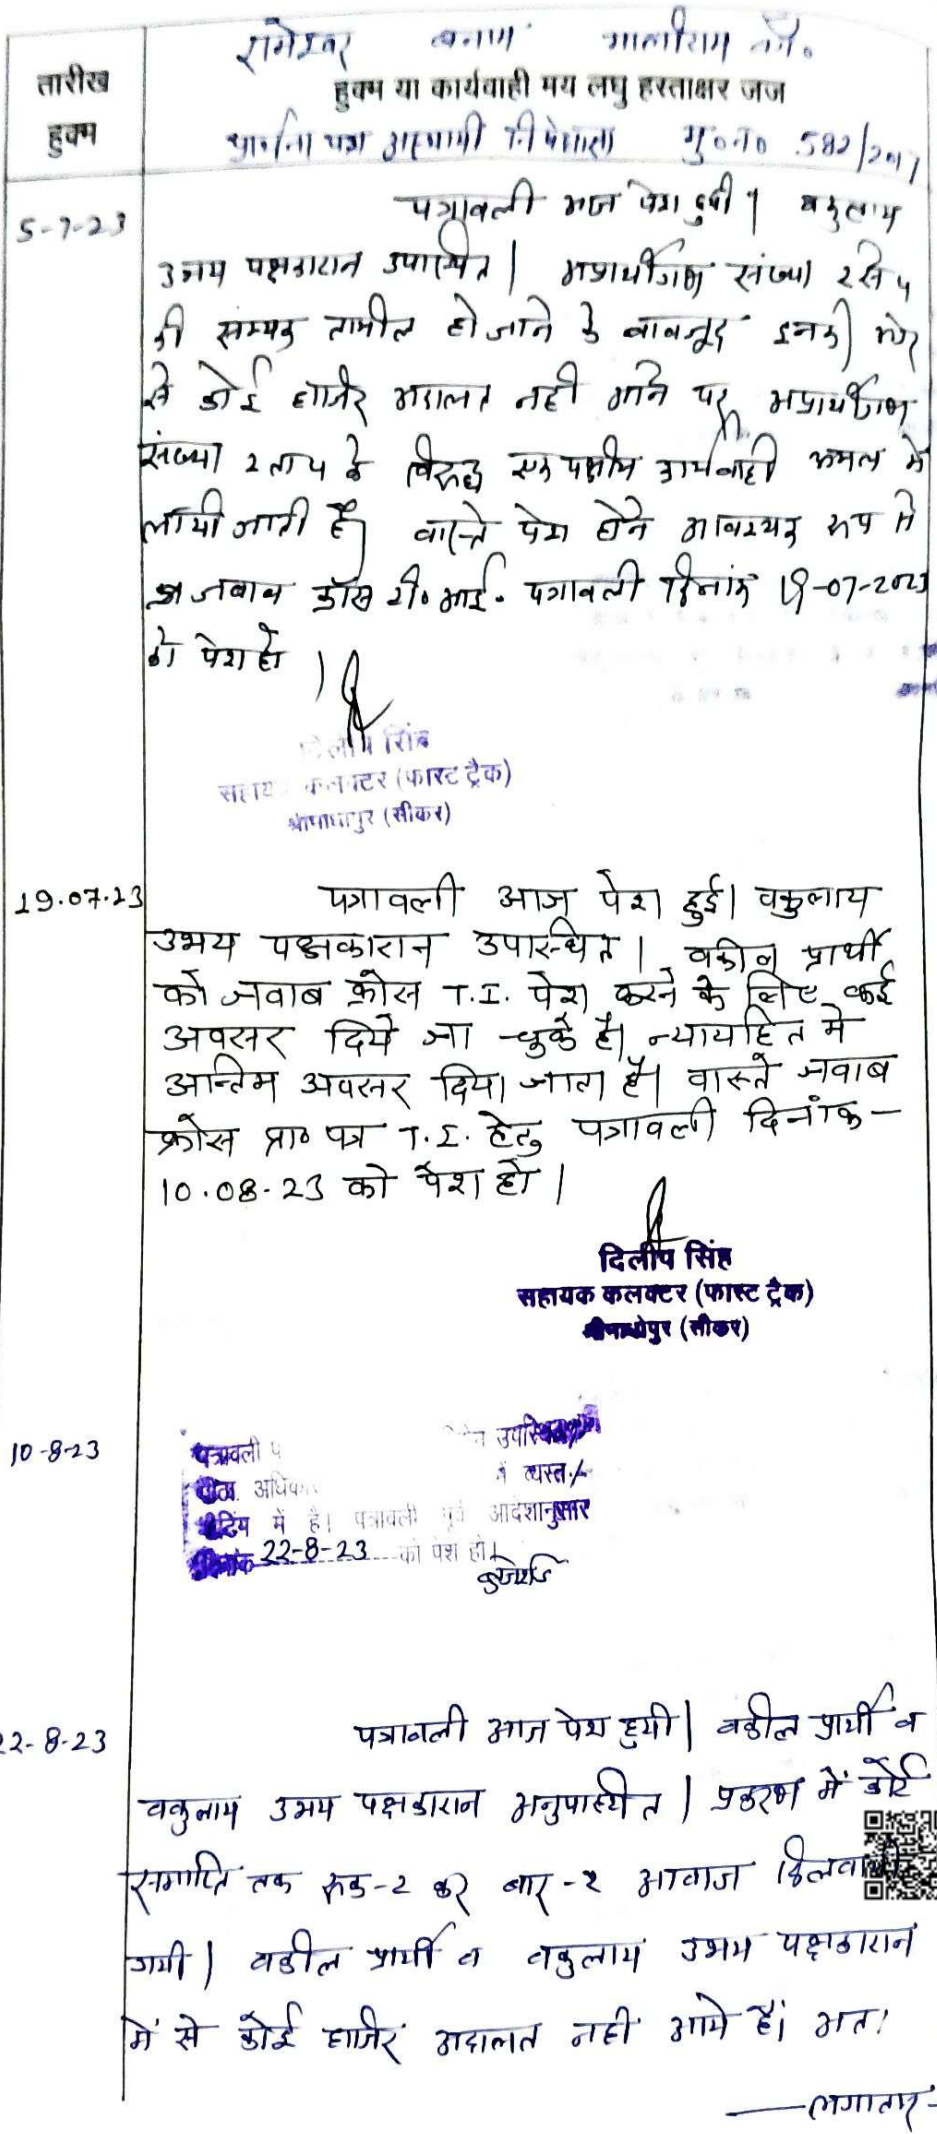 रामेश्वर बनाम मालीराम वगै०
तारीख
हुक्म
हुक्म या कार्यवाही मय लघु हस्ताक्षर जज
प्रार्थना पत्र अस्थायी निषेधाज्ञा मु०न० 582/2017
5-7-23
पत्रावली आज पेश हुयी। वकुलाय
उभय पक्षकारान उपस्थित। अप्रार्थीगण संख्या 2 से 4
की सम्यक तामील हो जाने के बावजूद इनकी ओर
से कोई हाजिर अदालत नही आने पर अप्रार्थीगण
संख्या 2 ता 4 के विरुद्ध एक पक्षीय कार्यवाही अमल में
लायी जाती है। वास्ते पेश होने आवश्यक रूप से
जवाब क्रॉस टी०आई० पत्रावली दिनांक 19-07-2023
को पेश हो।
दिलीप सिंह
सहायक कलक्टर (फास्ट ट्रैक)
श्रीमाधोपुर (सीकर)
19.07.23
पत्रावली आज पेश हुई। वकुलाय
उभय पक्षकारान उपस्थित। वकील प्रार्थी
को जवाब क्रोस T.I. पेश करने के लिए कई
अवसर दिये जा चुके है। न्यायहित मे
अन्तिम अवसर दिया जाता है। वास्ते जवाब
क्रोस प्रा० पत्र T.I. हेतु पत्रावली दिनांक-
10.08.23 को पेश हो।
दिलीप सिंह
सहायक कलक्टर (फास्ट ट्रैक)
श्रीमाधोपुर (सीकर)
10-8-23
पत्रावली
उपस्थित
व्यस्त
मीटिंग में है। पत्रावली पूर्व आदेशानुसार
दिनांक 22-8-23 को पेश हो।
22-8-23
पत्रावली आज पेश हुयी। वकील प्रार्थी व
वकुलाय उभय पक्षकारान अनुपस्थित। प्रकरण में कोर्ट
समाप्ति तक रूक-2 कर बार-2 आवाज दिलवायी
गयी। वकील प्रार्थी व वकुलाय उभय पक्षकारान
में से कोई हाजिर अदालत नही आये हैं। अतः
—लगातार-